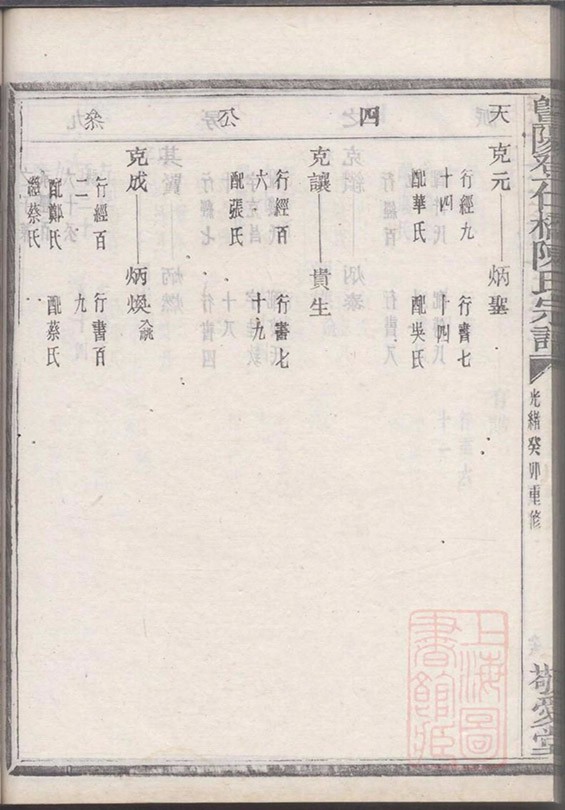 陳氏宗譜
光緒癸卯重修
敬愛堂
天 四 公 叅
克元 炳聖
行經九 行書七
十四 十四
配華氏 配吳氏
克讓 貴生
行經百 行書七
六 十九
配張氏
克成 炳煥
行經百 行書百
十二 九
配鄭氏 配蔡氏
繼蔡氏
上海圖書館藏